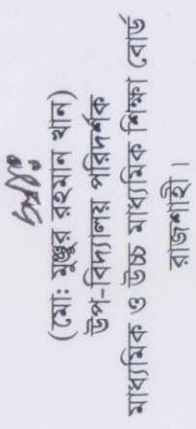 (মো: মুঞ্জুর রহমান খান)
উপ-বিদ্যালয় পরিদর্শক
মাধ্যমিক ও উচ্চ মাধ্যমিক শিক্ষা বোর্ড
রাজশাহী।